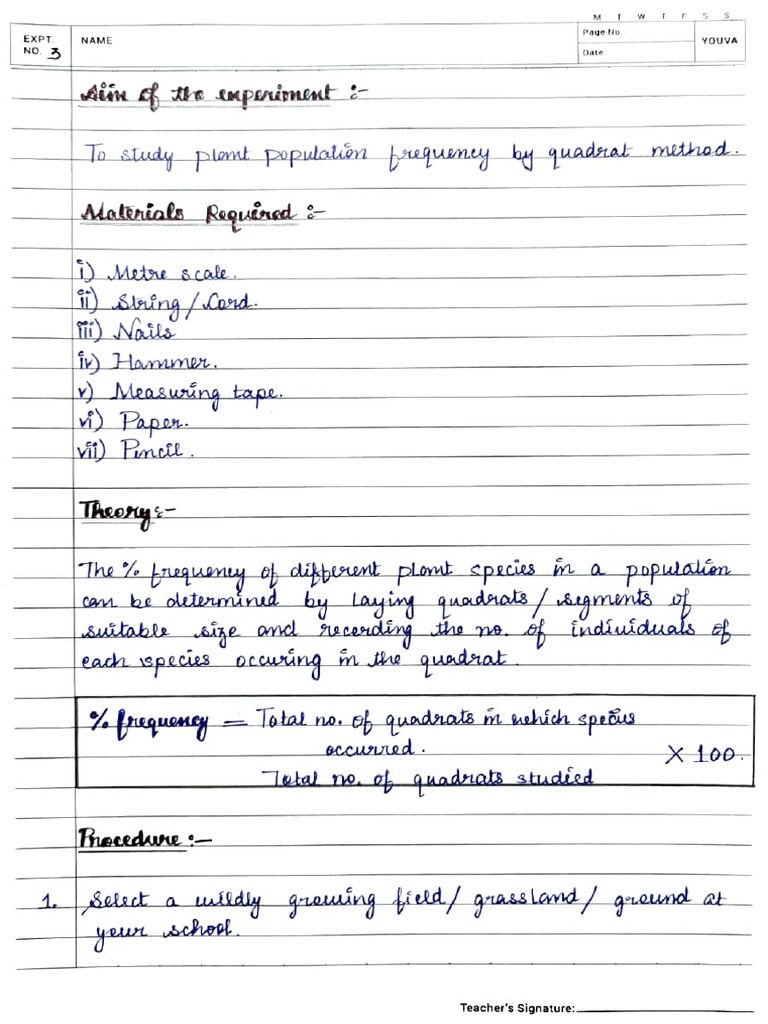 M T W T F S S
EXPT. NO. 3
NAME
Page No.:
Date:
YOUVA
Aim of the experiment :-
To study plant population frequency by quadrat method.
Materials Required :-
i) Metre scale.
ii) String / Cord.
iii) Nails
iv) Hammer.
v) Measuring tape.
vi) Paper.
vii) Pencil.
Theory :-
The % frequency of different plant species in a population
can be determined by laying quadrats / segments of
suitable size and recording the no. of individuals of
each species occuring in the quadrat.
% frequency = Total no. of quadrats in which species
occurred.
X 100.
Total no. of quadrats studied
Procedure :-
1. Select a wildly growing field / grassland / ground at
your school.
Teacher's Signature: